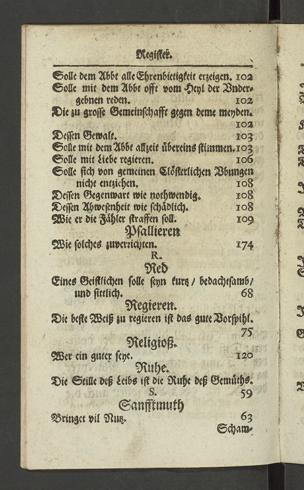 Register.
Solle dem Abbt alle Ehrenbietigkeit erzeigen. 102
Solle mit dem Abbt offt vom Heyl der Vnder-
gebnen reden. 102
Die zu grosse Gemeinschafft gegen deme meyden.
102
Dessen Gewalt. 103
Solle mit dem Abbt allzeit übereins stimmen. 103
Solle mit Liebe regieren. 106
Solle sich von gemeinen Clösterlichen Vbungen
nicht entziehen. 108
Dessen Gegenwart wie nothwendig. 108
Dessen Abwesenheit wie schädlich. 108
Wie er die Fähler straffen soll. 109
Psallieren
Wie solches zuverrichten. 174
R.
Red
Eines Geistlichen solle seyn kurtz / bedachtsamb /
und sittlich. 68
Regieren.
Die beste Weiß zu regieren ist das gute Vorspihl.
75
Religioß.
Wer ein guter seye. 120
Ruhe.
Die Stille deß Leibs ist die Ruhe deß Gemüths.
59
S.
Sanfftmuth
Bringet vil Nutz. 63
Scham-